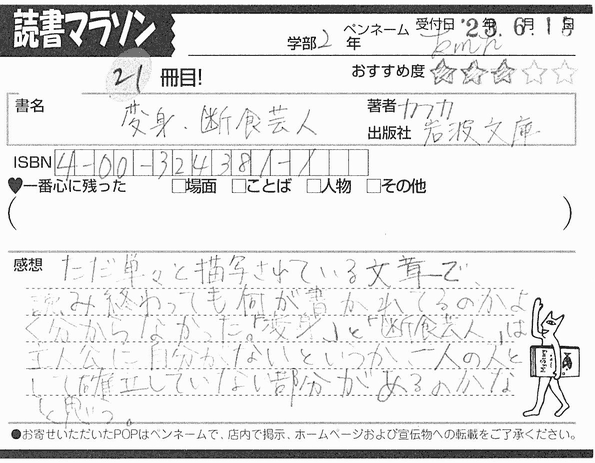 読書マラソン
21冊目!
学部2年
ペンネーム
受付日 '23.6.1
おすすめ度 ★★★☆☆
書名 変身・断食芸人
著者 カフカ
出版社 岩波文庫
ISBN 4-00-324381-1
♥一番心に残った □場面 □ことば □人物 □その他
( )
感想 ただ単々と描写されている文章で、
読み終わっても何が書かれてるのかよ
く分からなかった。「変身」と「断食芸人」は
主人公に自分がないというか一人の人と
して確立していない部分があるのかな
と思う。
●お寄せいただいたPOPはペンネームで、店内で掲示、ホームページおよび宣伝物への転載をご了承ください。